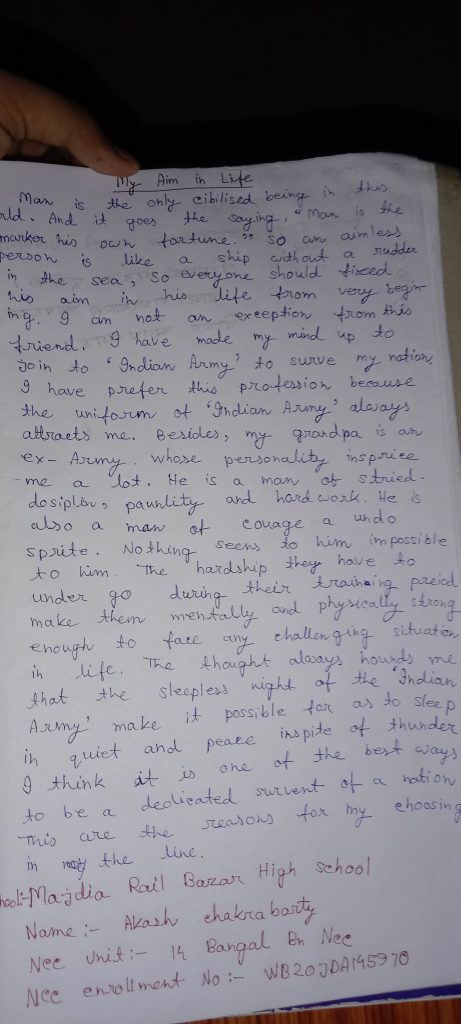 My Aim in Life
Man is the only cibilised being in this
rld. And it goes the saying, "Man is the
marker his own fortune." So an aimless
person is like a ship without a rudder
in the sea, so everyone should fixed
his aim in his life from very begin
ing. I am not an exception from this
friend. I have made my mind up to
join to 'Indian Army' to surve my nation.
I have prefer this profession because
the uniform of 'Indian Army' always
attracts me. Besides, my grandpa is an
ex-Army. whose personality insprice
me a lot. He is a man of stried.
dosiplin, paunlity and hard work. He is
also a man of couage a undo
sprite. Nothing seens to him impossible
to him. The hardship they have to
under go during their trainaing preiod
make them mentally and physically strong
enough to face any challenging situation
in life. The thought always hounds me
that the sleepless night of the 'Indian
Army' make it possible for as to sleep
in quiet and peace inspite of thunder
I think it is one of the best ways
to be a dedicated survent of a nation.
This are the reasons for my choosing
in the line.
hool:- Majdia Rail Bazar High school
Name :- Akash chakraborty
Ncc unit:- 14 Bangal Bn Ncc
Ncc enrollment No :- WB20JDA145970